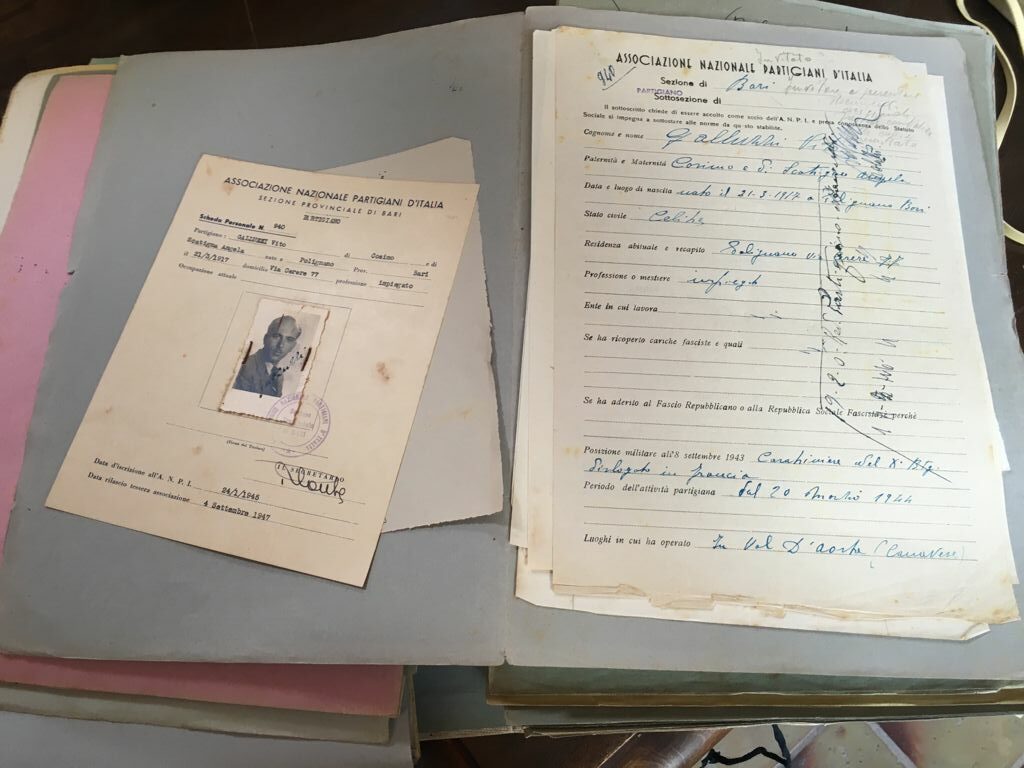 ASSOCIAZIONE NAZIONALE PARTIGIANI D'ITALIA
SEZIONE PROVINCIALE DI BARI
PARTIGIANO
Scheda Personale N. 940
Partigiano: Vito di Cosimo e di
Scatigna Angela nato a Polignano Prov. Bari
il 21/3/1917 domicilio Via Cerere 77
Occupazione attuale professione Impiegato
(Firma del Titolare)
IL SEGRETARIO
Data d'iscrizione all'A. N. P. I. 24/1/1945
Data rilascio tessera associazione 4 Settembre 1947
Invitato
ASSOCIAZIONE NAZIONALE PARTIGIANI D'ITALIA
940
Sezione di Bari
PARTIGIANO
Sottosezione di
Il sottoscritto chiede di essere accolto come socio dell'A. N. P. I. e presa conoscenza dello Statuto
Sociale si impegna a sottostare alle norme da questo stabilite.
Cognome e nome
Paternità e Maternità Cosimo e di Scatigna Angela
Data e luogo di nascita nato il 21-3-1917 a Polignano Bari
Stato civile Celibe
Residenza abituale e recapito Polignano Via Cerere 77
Professione o mestiere
Ente in cui lavora
Se ha ricoperto cariche fasciste e quali
Se ha aderito al Fascio Repubblicano o alla Repubblica Sociale Fascista e perchè
Posizione militare all'8 settembre 1943 Carabiniere del
Dislogato in Francia
Periodo dell'attività partigiana dal 20 1944
Luoghi in cui ha operato In Val D'aosta (Canavese)